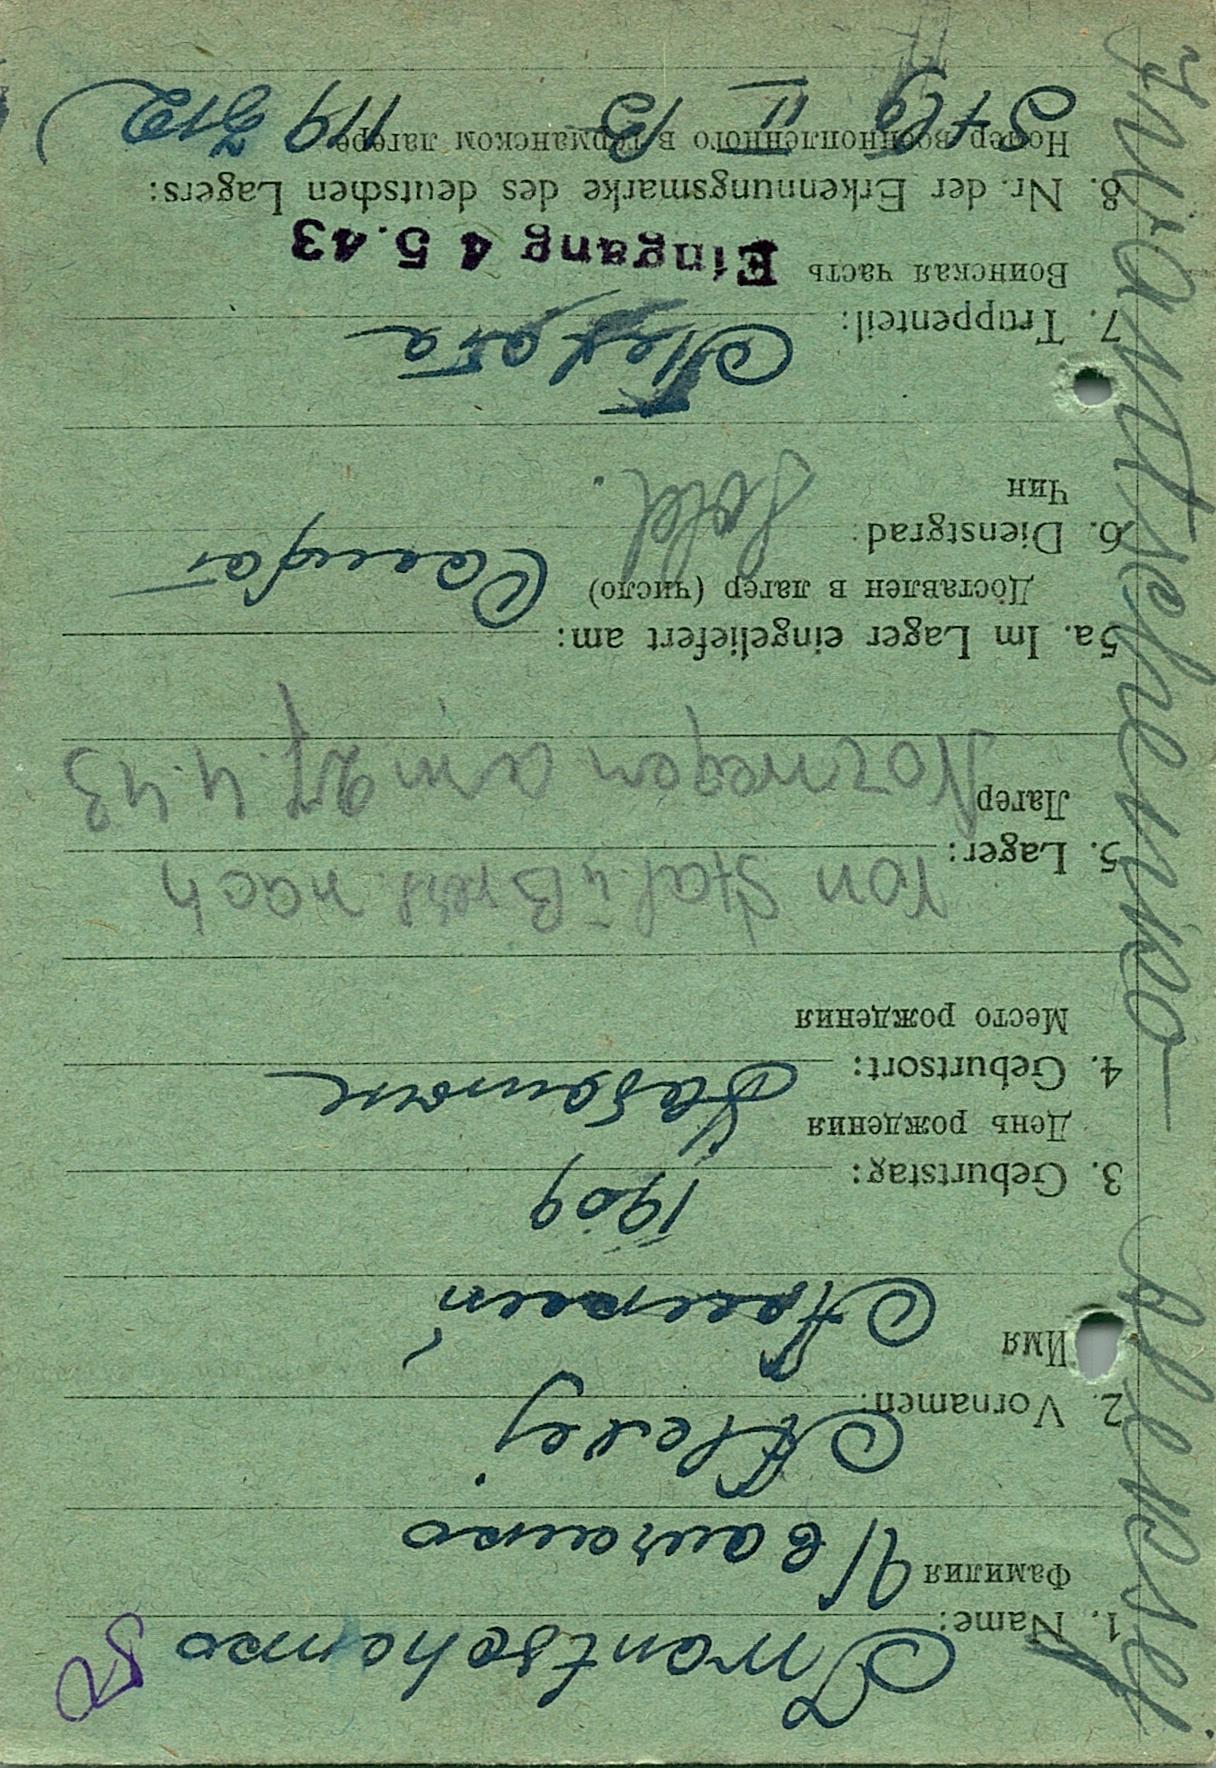 Iwantschenko
1. Name:
Фамилия Иванченко
Alexej
2. Vornamen:
Имя Алексей
1909
3. Geburtstag:
День рождения
4. Geburtsort:
Место рождения
von Stal. II B nach
5. Lager:
Лагер Norwegen am 27.4.43
5a. Im Lager eingeliefert am:
Доставлен в лагер (число) Солдат
6. Dienstgrad: Sold.
Чин
Пехота
7. Truppenteil:
Воинская часть Eingang 4 5.43
8. Nr. der Erkennungsmarke des deutschen Lagers:
Номер военнопленного в германском лагере
Stlg II B 119 312
Iwantschenko Alexej